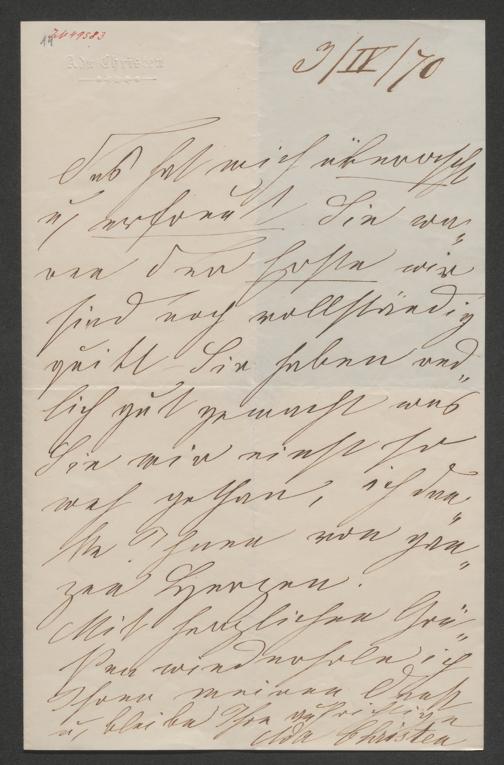 Ada Christen
3/IV/70
Das hat mich überrascht
u, erfreut Sie wa„
ren der Erste wir
sind nach vollständig
quitt Sie haben red„
lich gut gemacht was
Sie mir einst so
weh gethan, ich dan„
ke Ihnen von gan„
zen Herzen.
Mit herzlichen Grü„
ßen wiederhole ich
Ihnen meinen Dank
u, bleibe Ihre aufrichtige
Ada Christen